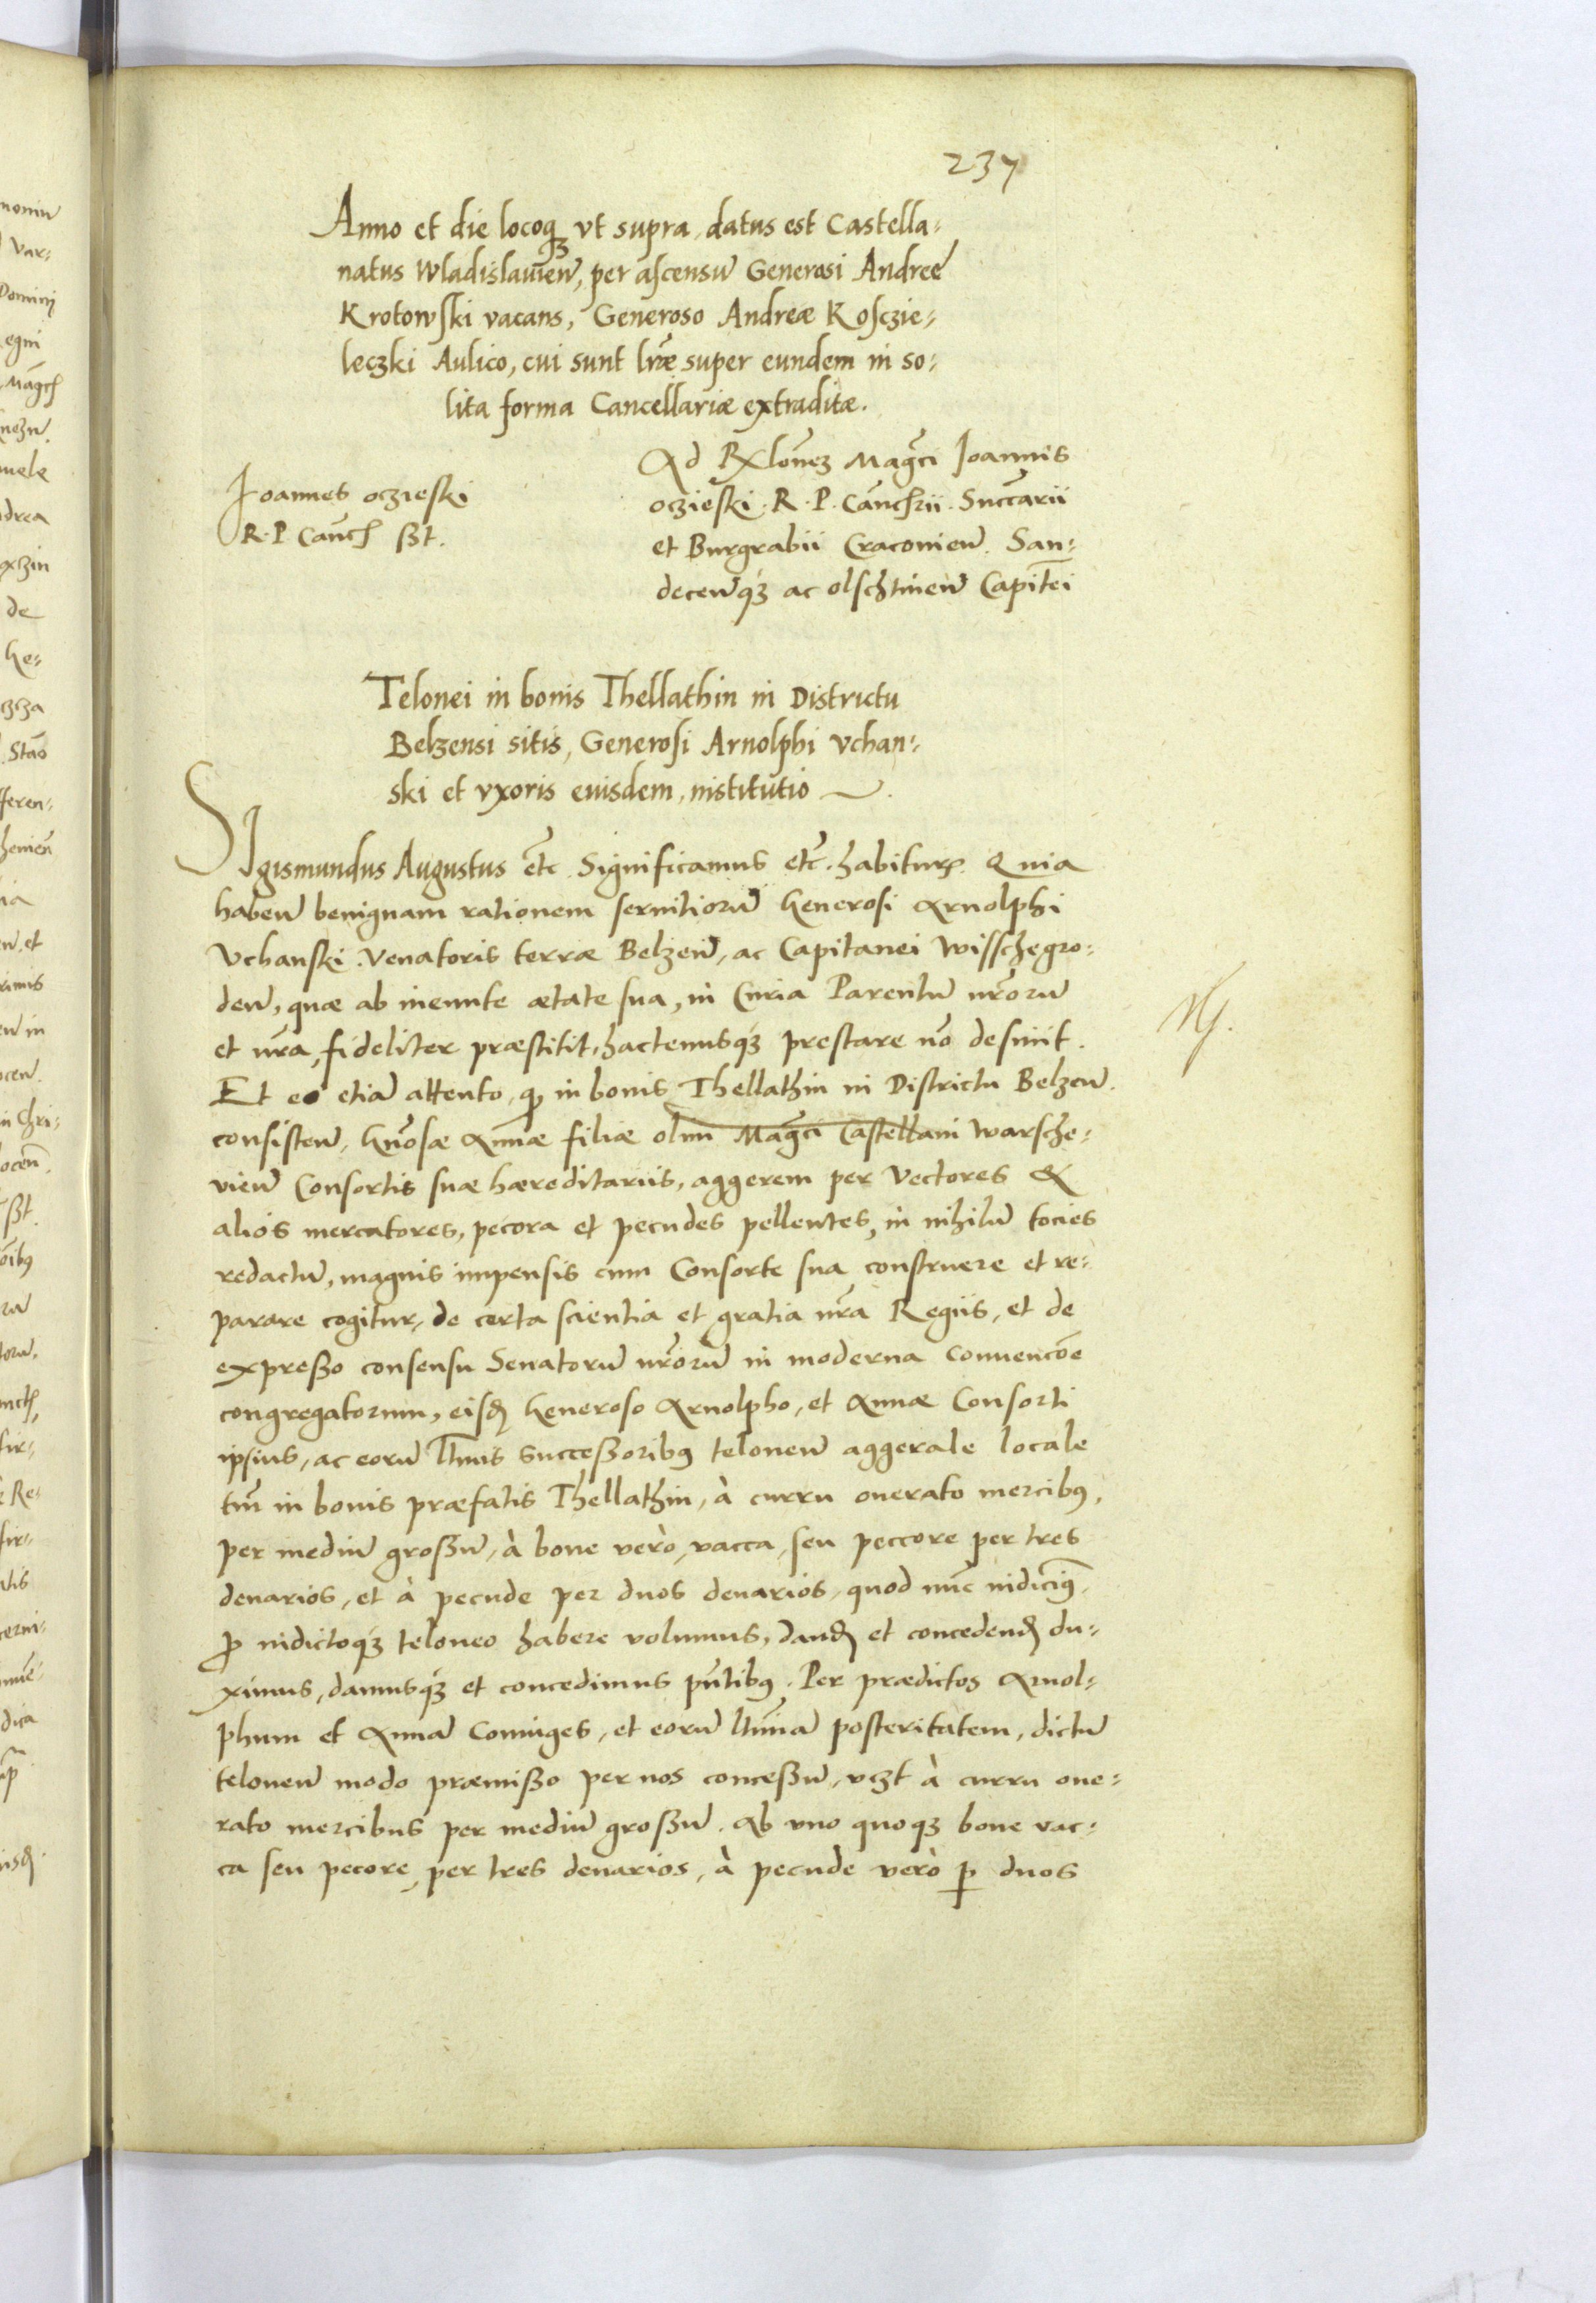 237
Anno et die locoqȝ vt supra, datus est Castella-
natus Wladislauieñ, per ascensũ Generosi Andreę
Krotowski vacans, Generoso Andreæ Kosczie-
leczki Aulico, cui sunt lr̃æ super eundem in so-
lita forma Cancellariæ extraditæ.
Ad Rx̃lonẽȝ Mag̃ci Joannis
oczieski. R. P. Cãncłrii. Succãrii
et Burgrabii Cracovieñ. San-
deceñqȝ ac olschtineñ Capitẽi
Joannes oczieski
R. P Cãncł ßt.
Telonei in bonis Thellathin in Districtu
Belzensi sitis, Generosi Arnolphi Vchan-
ski et vxoris euisdem, institutio
Sigismundus Augustus etc̃. Significamus etc̃. habituris. Quia
habeñ benignam rationem seruitiorũ Generosi Arnolphi
Vchanski. Venatoris terræ Belzeñ, ac Capitanei Wisschegro-
deñ, quæ ab ineunte ætate sua, in Curia Parentũ nr̃orũ
et nr̃a, fideliter præstitit, hactenusqȝ prestare nõ desinit.
Et eo etiã attento, qȝ in bonis Thellathin in Districtu Belzeñ.
consisteñ, Gñosæ Annæ filiæ olim Mag̃ci Castellani Warsche-
vieñ Consortis suæ hæreditariis, aggerem per Vectores &
alios mercatores, pecora et pecudes pellentes, in nihilũ tocies
redactũ, magnis impensis cum Consorte sua construere et re-
parare cogitur, de certa scientia et gratia nr̃a Regiis, et de
expreßo consensu Senatorũ nr̃orũ in moderna conuencõe
congregatorum, eisdẽ Generoso Arnolpho, et Annæ Consorti
ipsius, ac eorũ ltimis succeßoribꝰ teloneũ aggerale locale
tm̃ in bonis præfatis Thellathin, à curru onerato mercibꝰ,
per mediũ großũ, à boue verò, vacca, seu peccore per tres
denarios, et à pecude per duos denarios, quod nũc indicimꝰ,
ꝓ indictoqȝ teloneo habere volumus, dandẽ et concedendẽ du-
ximus, damusqȝ et concedimus pñtibꝰ. Per prædictos Arnol-
phum et Annã Coniuges, et eorũ ltimã posteritatem, dictũ
teloneũ modo præmißo per nos conceßũ, vczt à curru one-
rato mercibus per mediũ großũ. Ab vno quoqȝ boue vac-
ca seu pecore, per tres denarios, à pecude verò ꝑ duos